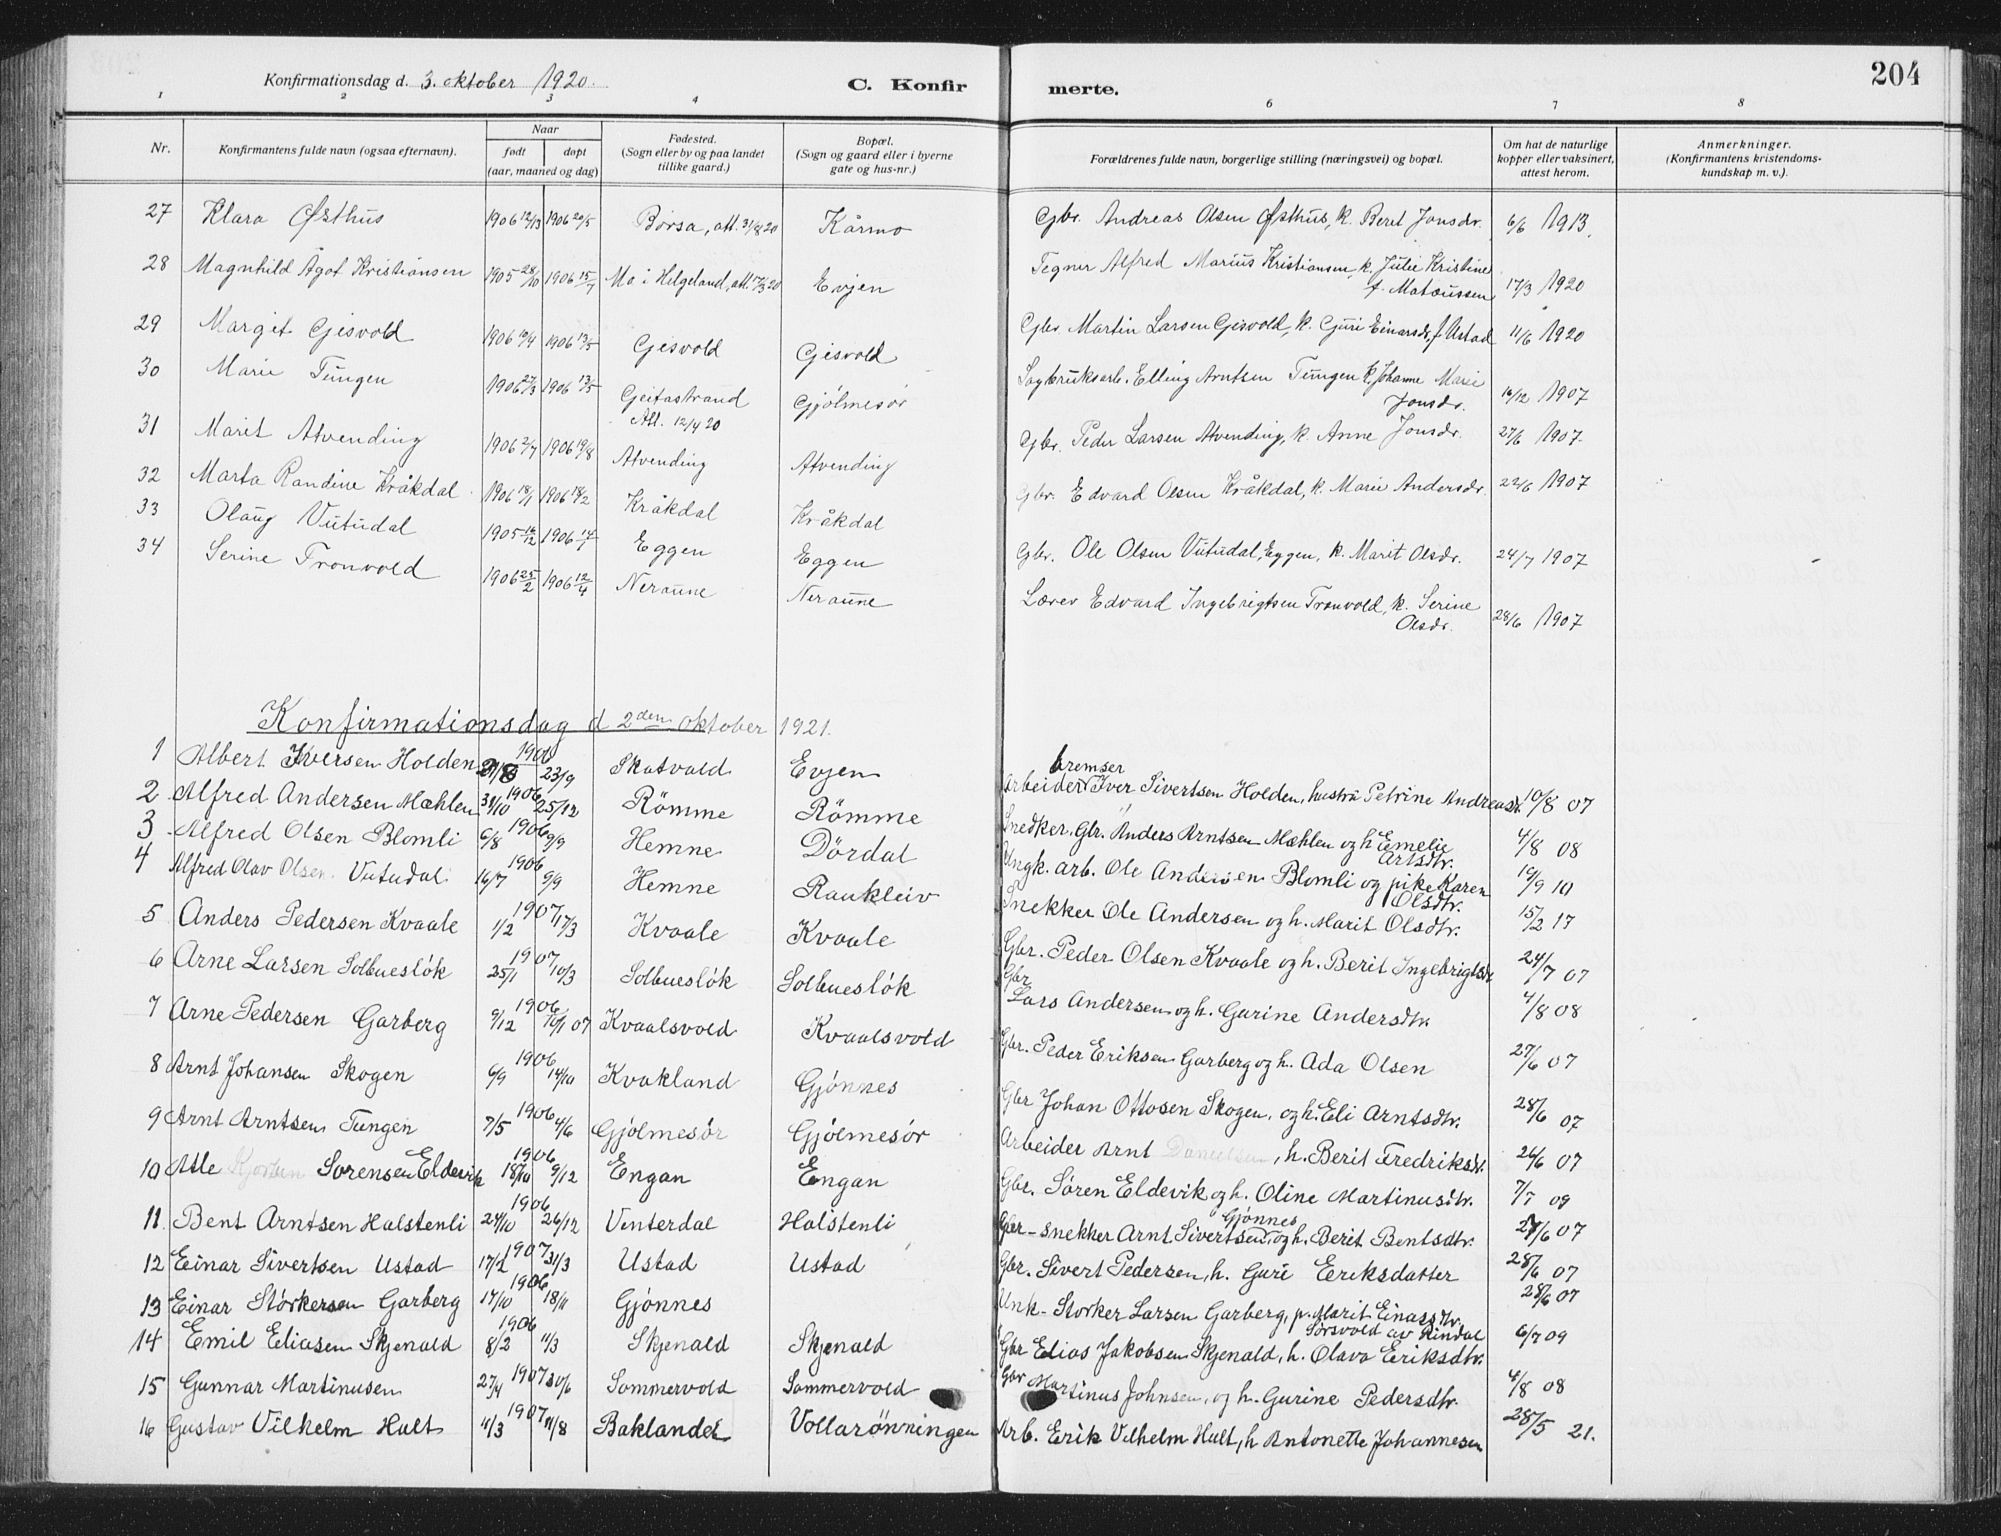 204
Konfirmationsdag d. 3. oktober 1920. C. Konfirmerte.
1 2 3 4 6 7 8
Nr. Konfirmantens fulde navn (ogsaa efternavn). Naar født døpt (aar, maaned og dag) Fødested. (Sogn eller by og paa landet tillike gaard.) Bopæl. (Sogn og gaard eller i byerne gate og hus-nr.) Forældrenes fulde navn, borgerlige stilling (næringsvei) og bopæl. Om hat de naturlige kopper eller vaksinert, attest herom. Anmerkninger. (Konfirmantens kristendomskundskap m. v.).
27 Klara Østhus 1906 12/13 1906 20/5 Børsa, att. 31/8 20 Kårmo Gbr. Andreas Olsen Østhus, k. Beret Jonsdr. 6/6 1913.
28 Magnhild Ågot Kristiansen 1905 28/10 1906 15/7 Mo i Helgeland, att. 17/3 20 Evjen Tegner Alfred Marius Kristiansen, k. Julie Kristine
f. Mateussen 17/3 1920
29 Margit Gisvold 1906 19/4 1906 13/5 Gisvold Gisvold Gbr. Martin Larsen Gisvold, k. Guri Einarsdr. f. Ustad 11/6 1920
30 Marie Tungen 1906 27/3 1906 13/5 Geitastrand Gjölmesör Sagbruksarb. Elling Arntsen Tungen k. Johanne Marie
Att. 12/4 20 Jonsdr. 16/12 1907
31 Marit Atvending 1906 2/7 1906 19/8 Atvending Atvending Gbr. Peder Larsen Atvending, k. Anne Jonsdr. 27/6 1907.
32 Marta Randine Kråkdal 1906 18/1 1906 18/2 Kråkdal Kråkdal Gbr. Edvard Olsen Kråkdal, k. Marie Andersdr. 22/6 1907
33 Olaug Vutudal 1905 16/12 1906 14/1 Eggen Eggen Gbr. Ole Olsen Vutudal, Eggen, k. Marit Olsdr. 24/7 1907
34 Serine Tronvold 1906 25/2 1906 12/4 Neraune Neraune Lærer Edvard Ingebrigtsen Tronvold, k. Serine
Olsdr. 28/6 1907
Konfirmationsdag d 2den oktober 1921.
1 Albert Iversen Holden 1906 23/9 Skatvold Evjen Arbeider bremser Iver Sivertsen Holden, hustru Petrine Andreasdr. 10/8 07
2 Alfred Andersen Mæhlen 31/10 1906 25/12 Römme Römme Snedker. Gbr. Anders Arntsen Mæhlen og h Emelie
Artsdtr. 4/8 08
3 Alfred Olsen Blomli 6/8 1906 9/9 Hemne Dördal Ungk. arb. Ole Andersen Blomli og pike Karen
Olsdtr. 19/9 10
4 Alfred Olav Olsen Vutudal 16/7 1906 9/9 Hemne Raukleiv Snekker Ole Andersen og h. Marit Olsdtr. 15/2 17
5 Anders Pedersen Kvaale 1/2 1907 17/3 Kvaale Kvaale Gbr. Peder Olsen Kvaale og h. Berit Ingebrigtsdr 24/7 07
6 Arne Larsen Solbuesløk 25/1 1907 10/3 Solbuesløk Solbuesløk Gbr Lars Andersen og h. Gurine Andersdtr. 4/8 08
7 Arne Pedersen Garberg 9/12 1906 10/1 07 Kvaalsvold Kvaalsvold Gbr. Peder Eriksen Garberg og h. Ada Olsen 27/6 07
8 Arnt Johansen Skogen 6/9 1906 14/10 Kvakland Gjønnes Gbr Johan Ottosen Skogen, og h. Eli Arntsdtr. 28/6 07
9 Arnt Arntsen Tungen 7/5 1906 4/6 Gjølmesør Gjølmesør Arbeider Arnt Danielsen, h. Berit Fredriksdr. 26/6 07
10 Atle Sørensen Eldevik 18/10 1906 9/12 Engan Engan Gbr. Søren Eldevik og h. Oline Martinusdtr. 7/7 09
11. Bent Arntsen Halstenli 24/10 1906 26/12 Vinterdal Halstenli Gbr - snekker Arnt Sivertsen Gjønnes, og h. Berit Bentsdtr. 27/6 07
12 Einar Sivertsen Ustad 17/2 1907 31/3 Ustad Ustad Gbr. Sivert Pedersen, h. Guri Eeriksdatter 28/6 07
13 Einar Størkersen Garberg 17/10 1906 18/11 Gjønnes Unk - Storker Larsen Garberg, p. Marit Einarsdtr.
Sørsvold av Rindal 28/6 07
14 Emil Eliasen Skjenald 8/2 1906 11/3 Skjenald Skjenald Gbr Elias Jakobsen Skjenald, h. Olava Eeriksdtr. 6/7 09
15 Gunnar Martinusen 27/4 1907 30/6 Sommervold Sommervold Gbr Martinus Johnsen, og h. Gurine Pedersdtr. 4/8 08
16 Gustav Vilhelm Hult 4/3 1907 11/8 Baklandet Vollarønningen Arb. Erik Vilhelm Hult, h Antonette Johannesen 28/5 21.